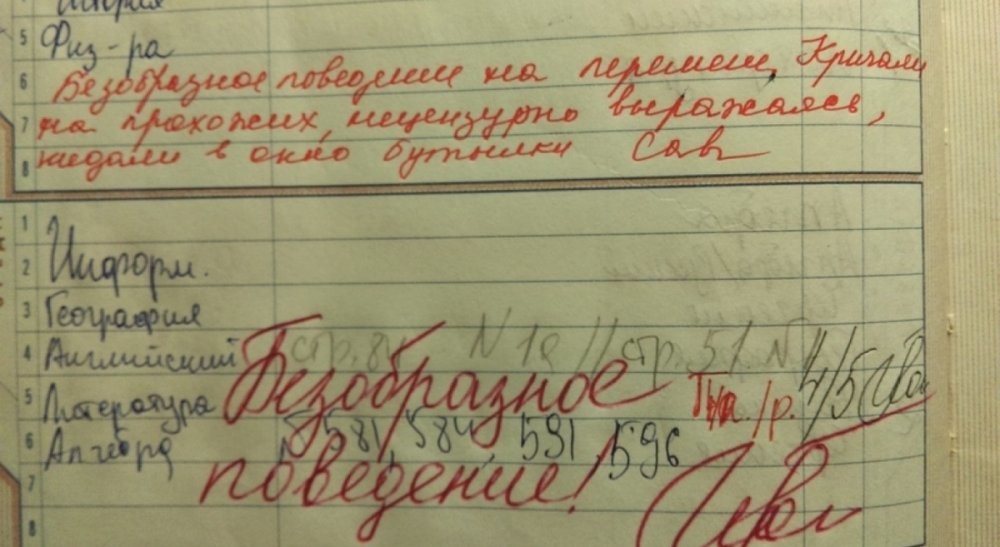 История
5 Физ-ра
6 Безобразное поведение на перемен. Кричали
7 на прохожих, нецензурно выражаясь,
8 кидали в окно бутылки
1
2 Информ.
3 География
4 Английский стр. 84 N 18 // стр. 51 N
5 Литература Безобразное 4/5
6 Алгебра N 581, 584, 591, 596
7 поведение!
8